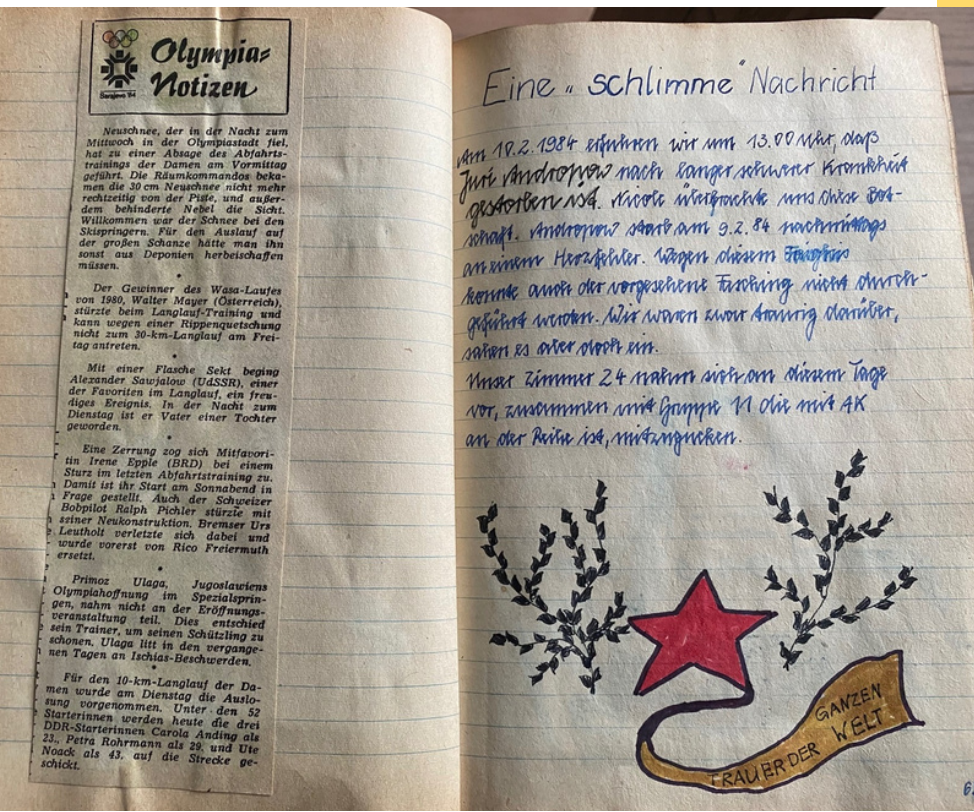 Olympia-
Notizen
Sarajevo '84
Neuschnee, der in der Nacht zum
Mittwoch in der Olympiastadt fiel,
hat zu einer Absage des Abfahrts-
trainings der Damen am Vormittag
geführt. Die Räumkommandos beka-
men die 30 cm Neuschnee nicht mehr
rechtzeitig von der Piste, und außer-
dem behinderte Nebel die Sicht.
Willkommen war der Schnee bei den
Skispringern. Für den Auslauf auf
der großen Schanze hätte man ihn
sonst aus Deponien herbeischaffen
müssen.
Der Gewinner des Wasa-Laufes
von 1980, Walter Mayer (Österreich),
stürzte beim Langlauf-Training und
kann wegen einer Rippenquetschung
nicht zum 30-km-Langlauf am Frei-
tag antreten.
Mit einer Flasche Sekt beging
Alexander Sawjalow (UdSSR), einer
der Favoriten im Langlauf, ein freu-
diges Ereignis. In der Nacht zum
Dienstag ist er Vater einer Tochter
geworden.
Eine Zerrung zog sich Mitfavori-
tin Irene Epple (BRD) bei einem
Sturz im letzten Abfahrtstraining zu.
Damit ist ihr Start am Sonnabend in
Frage gestellt. Auch der Schweizer
Bobpilot Ralph Pichler stürzte mit
seiner Neukonstruktion. Bremser Urs
Leutholt verletzte sich dabei und
wurde vorerst von Rico Freiermuth
ersetzt.
Primoz Ulaga, Jugoslawiens
Olympiahoffnung im Spezialsprin-
gen, nahm nicht an der Eröffnungs-
veranstaltung teil. Dies entschied
sein Trainer, um seinen Schützling zu
schonen. Ulaga litt in den vergange-
nen Tagen an Ischias-Beschwerden.
Für den 10-km-Langlauf der Da-
men wurde am Dienstag die Auslo-
sung vorgenommen. Unter den 52
Starterinnen werden heute die drei
DDR-Starterinnen Carola Anding als
23., Petra Rohrmann als 29. und Ute
Noack als 43. auf die Strecke ge-
schickt.
Eine „schlimme" Nachricht
Am 10.2.1984 erfuhren wir um 13.00 Uhr, daß
Juri Andropow nach langer schwerer Krankheit
gestorben ist. Nicole überbrachte uns diese Bot-
schaft. Andropow starb am 9.2.84 nachmittags
an einem Herzfehler. Wegen diesem
konnte auch der vorgesehene Fasching nicht durch-
geführt werden. Wir waren zwar traurig darüber,
sahen es aber doch ein.
Unser Zimmer 24 nahm sich an diesem Tage
vor, zusammen mit Gruppe 11 die mit AK
an der Reihe ist, mitzugucken.
TRAUER DER
GANZEN
WELT